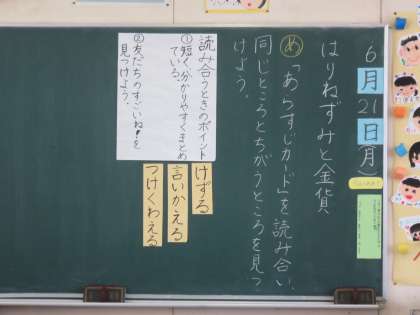 6月21日(月)
はりねずみと金貨
め「あらすじカード」を読み合い、
同じところとちがうところを見つ
けよう。
読み合うときのポイント
①短く、分かりやすくまとめ
ている。
②友だちのすごいね!を
見つけよう。
けずる
言いかえる
つけくわえる